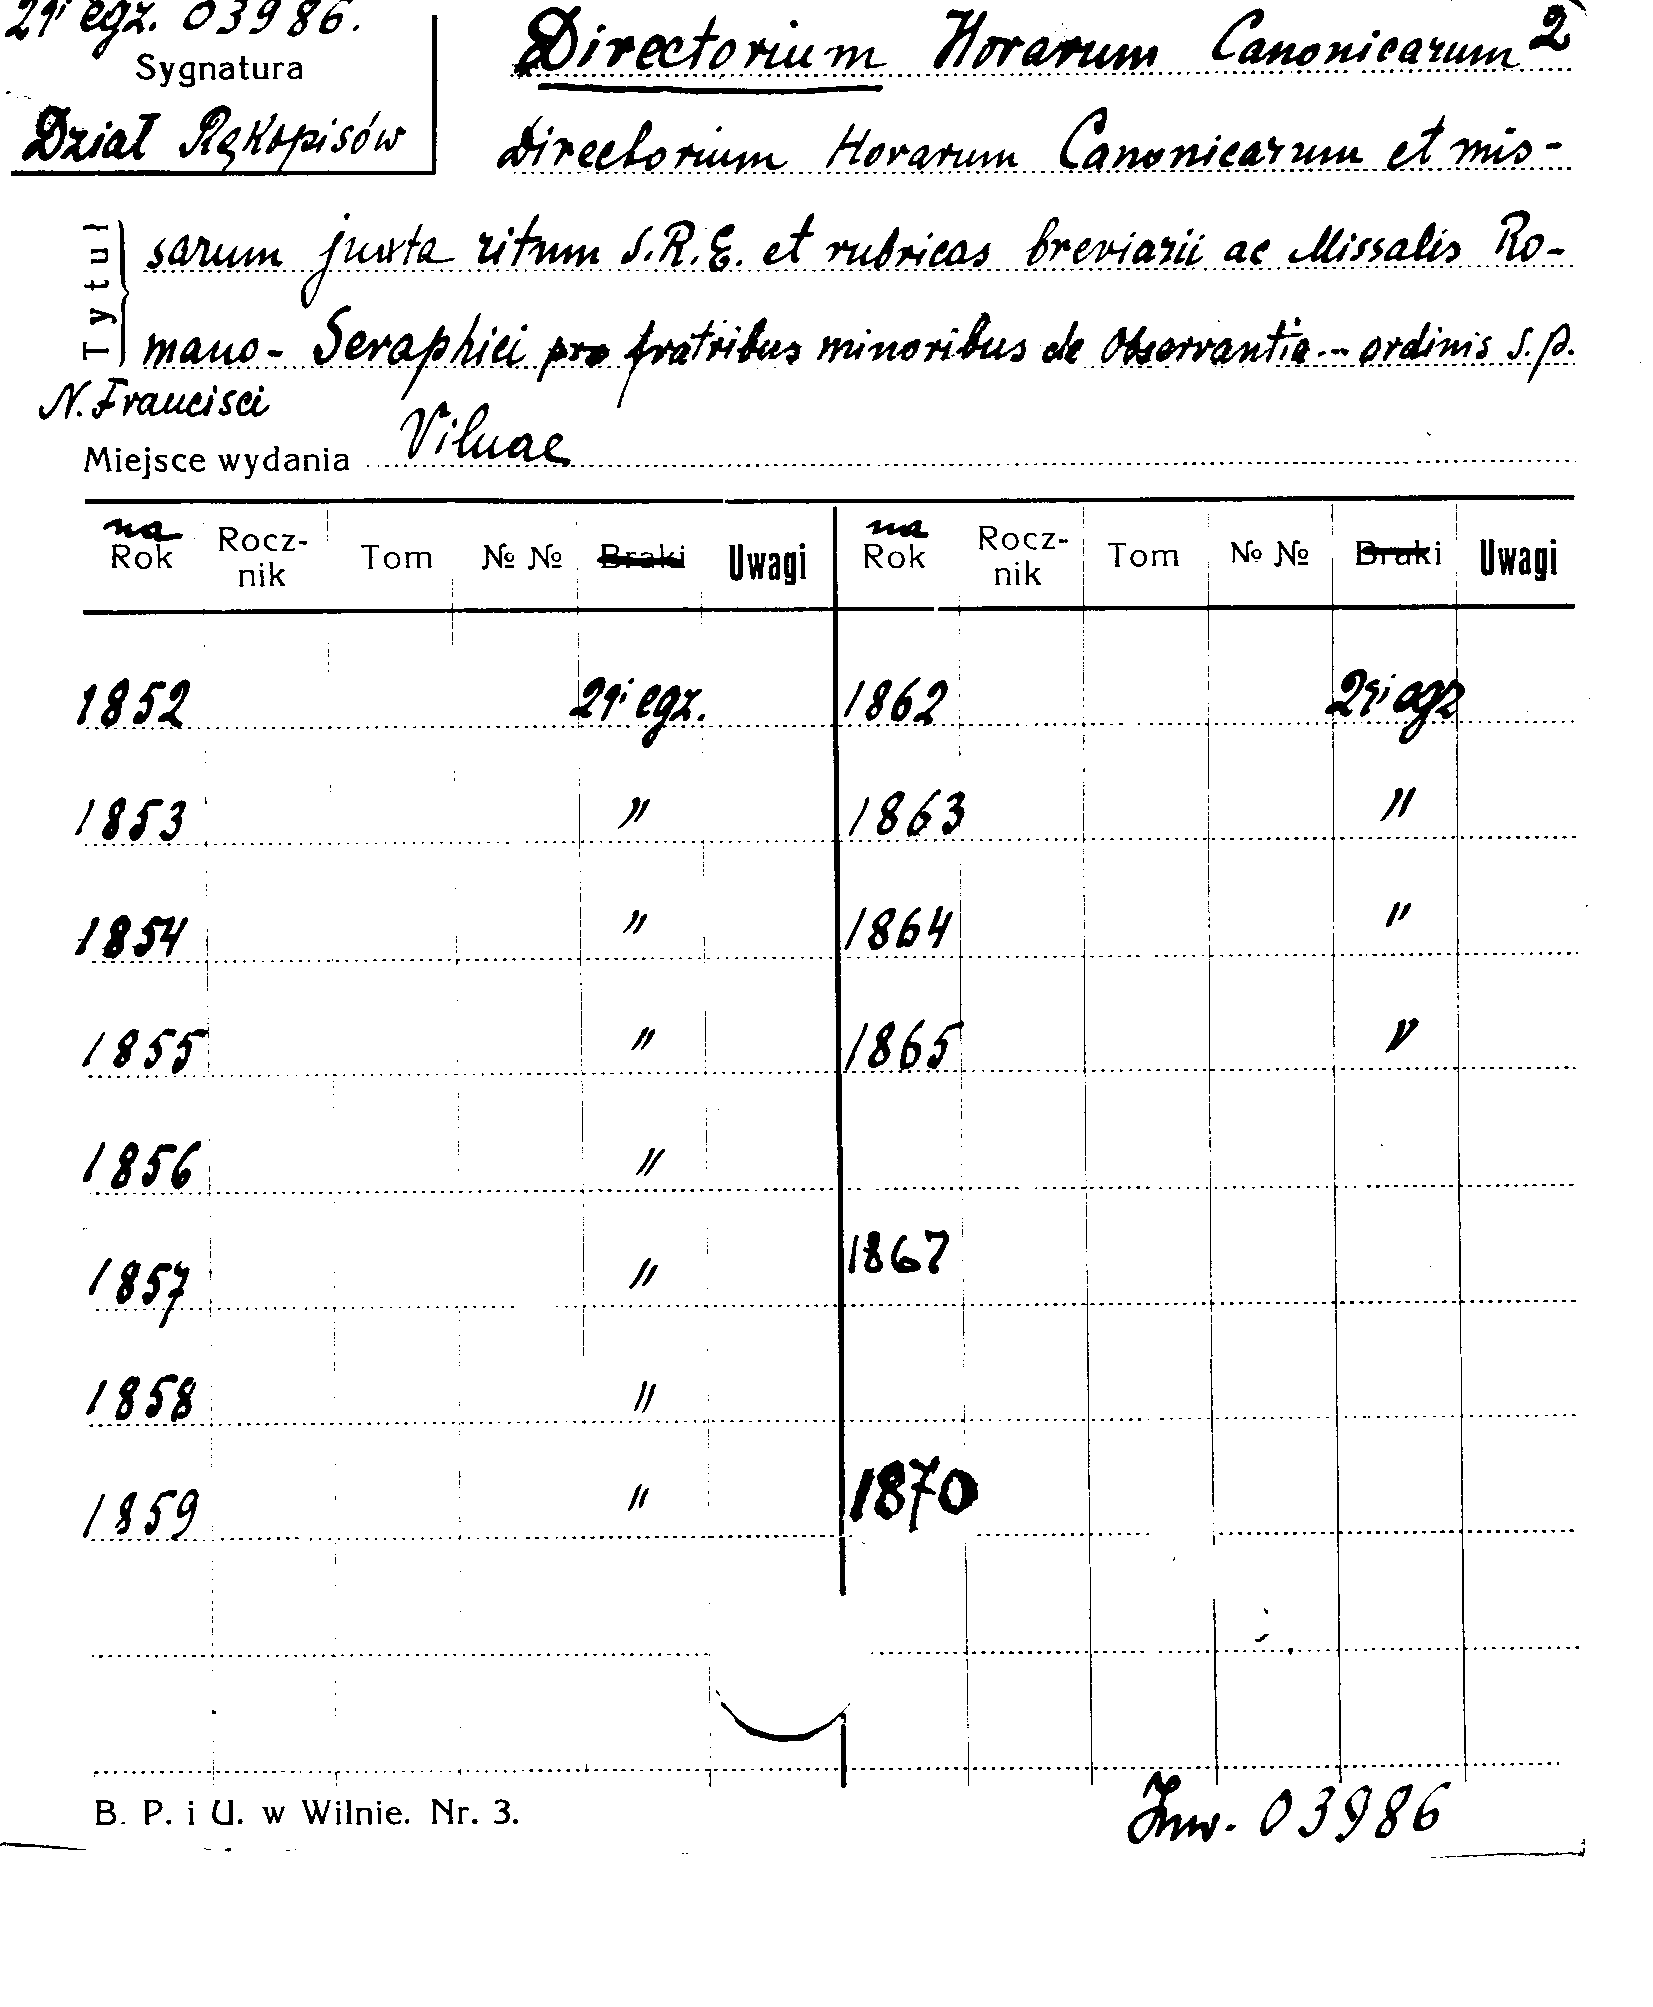 2gi egz. 03986.
Sygnatura
Dział Rękopisów
Directorium Horarum Canonicarum 2
Directorium Horarum Canonicarum et mis-
Tytuł
sarum juxta ritum S.R.E. et rubricas breviarii ac Missalis Ro-
mano- Seraphici pro fratribus minoribus de Observantia... ordinis S.P.
N. Francisci
Miejsce wydania Vilnae
na na
Rok Rocz-nik Tom № № Braki Uwagi Rok Rocz-nik Tom № № Braki Uwagi
1852 2gi egz. 1862 2gi egz
1853 " 1863 "
1854 " 1864 "
1855 " 1865 "
1856 "
1857 " 1867
1858 "
1859 " 1870
B. P. i U. w Wilnie. Nr. 3.
Inw. 03986